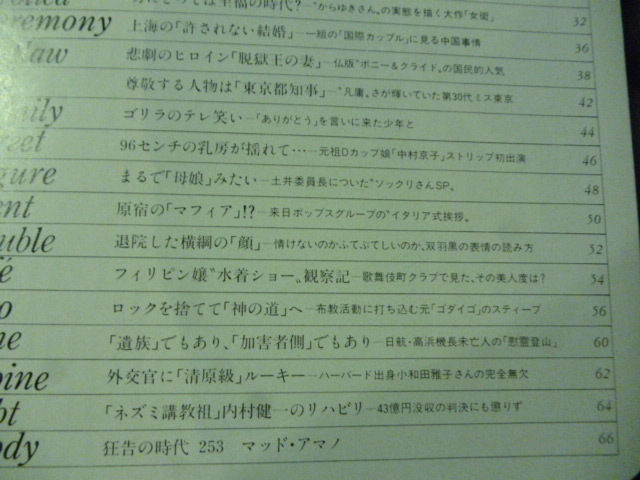 至福の時代?―"からゆきさん〟の実態を描く大作「女衒」 32
eremony 上海の「許されない結婚」―一組の「国際カップル」に見る中国事情 36
aw 悲劇のヒロイン「脱獄王の妻」―仏版"ボニー&クライド〟の国民的人気 38
尊敬する人物は「東京都知事」―"凡庸〟さが輝いていた第30代ミス東京 42
mily ゴリラのテレ笑い―「ありがとう」を言いに来た少年と 44
eet 96センチの乳房が揺れて…―元祖Dカップ娘「中村京子」ストリップ初出演 46
gure まるで「母娘」みたい―土井委員長についた"ソックリさんSP〟 48
ent 原宿の「マフィア」!?―来日ポップスグループの"イタリア式挨拶〟 50
uble 退院した横綱の「顔」―情けないのかふてぶてしいのか、双羽黒の表情の読み方 52
é フィリピン嬢"水着ショー〟観察記―歌舞伎町クラブで見た、その美人度は? 54
o ロックを捨てて「神の道」へ―布教活動に打ち込む元「ゴダイゴ」のスティーブ 56
ne 「遺族」でもあり、「加害者側」でもあり―日航・高浜機長未亡人の「慰霊登山」 60
oine 外交官に「清原級」ルーキー―ハーバード出身小和田雅子さんの完全無欠 62
bt 「ネズミ講教祖」内村健一のリハビリ―43億円没収の判決にも懲りず 64
ody 狂告の時代 253 マッド・アマノ 66